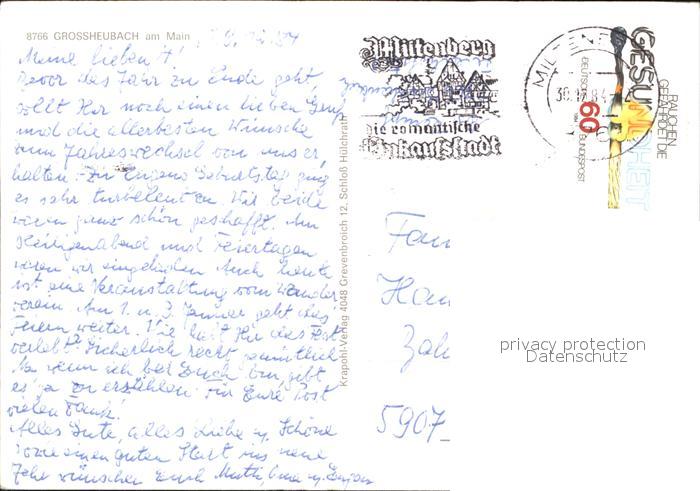 8766 GROSSHEUBACH am Main
Meine lieben 4!
Bevor das Jahr zu Ende geht,
sollt Ihr noch einen lieben Gruß
und die allerbesten Wünsche
zum Jahreswechsel von uns er-
halten. Zu Eugens Geburtstag ging
es sehr turbulent zu. Wir beide
waren ganz schön geschafft. Am
Heiligenabend und Feiertagen
waren wir eingeladen. Auch heute
ist eine Veranstaltung vom Wander-
verein. Am 1. u. 3. Januar geht das
Feiern weiter. Wie habt Ihr das Fest
verlebt? Sicherlich recht gemütlich.
Na wenn ich bei Euch bin, gibt
es ja zu erzählen. Für Eure Post
vielen Dank!
Alles Gute, alles Liebe u. Schöne
sowie einen guten Start ins neue
Jahr wünschen Euch Mutti, Oma u. Eugen
Krapohl-Verlag 4048 Grevenbroich 12, Schloß Hülchrath
Miltenberg
die romantische
Einkaufsstadt
30.12.84
RAUCHEN
GEFÄHRDET DIE
GESUNDHEIT
DEUTSCHE BUNDESPOST
60
Fam
Han
Zah
5907
privacy protection
Datenschutz